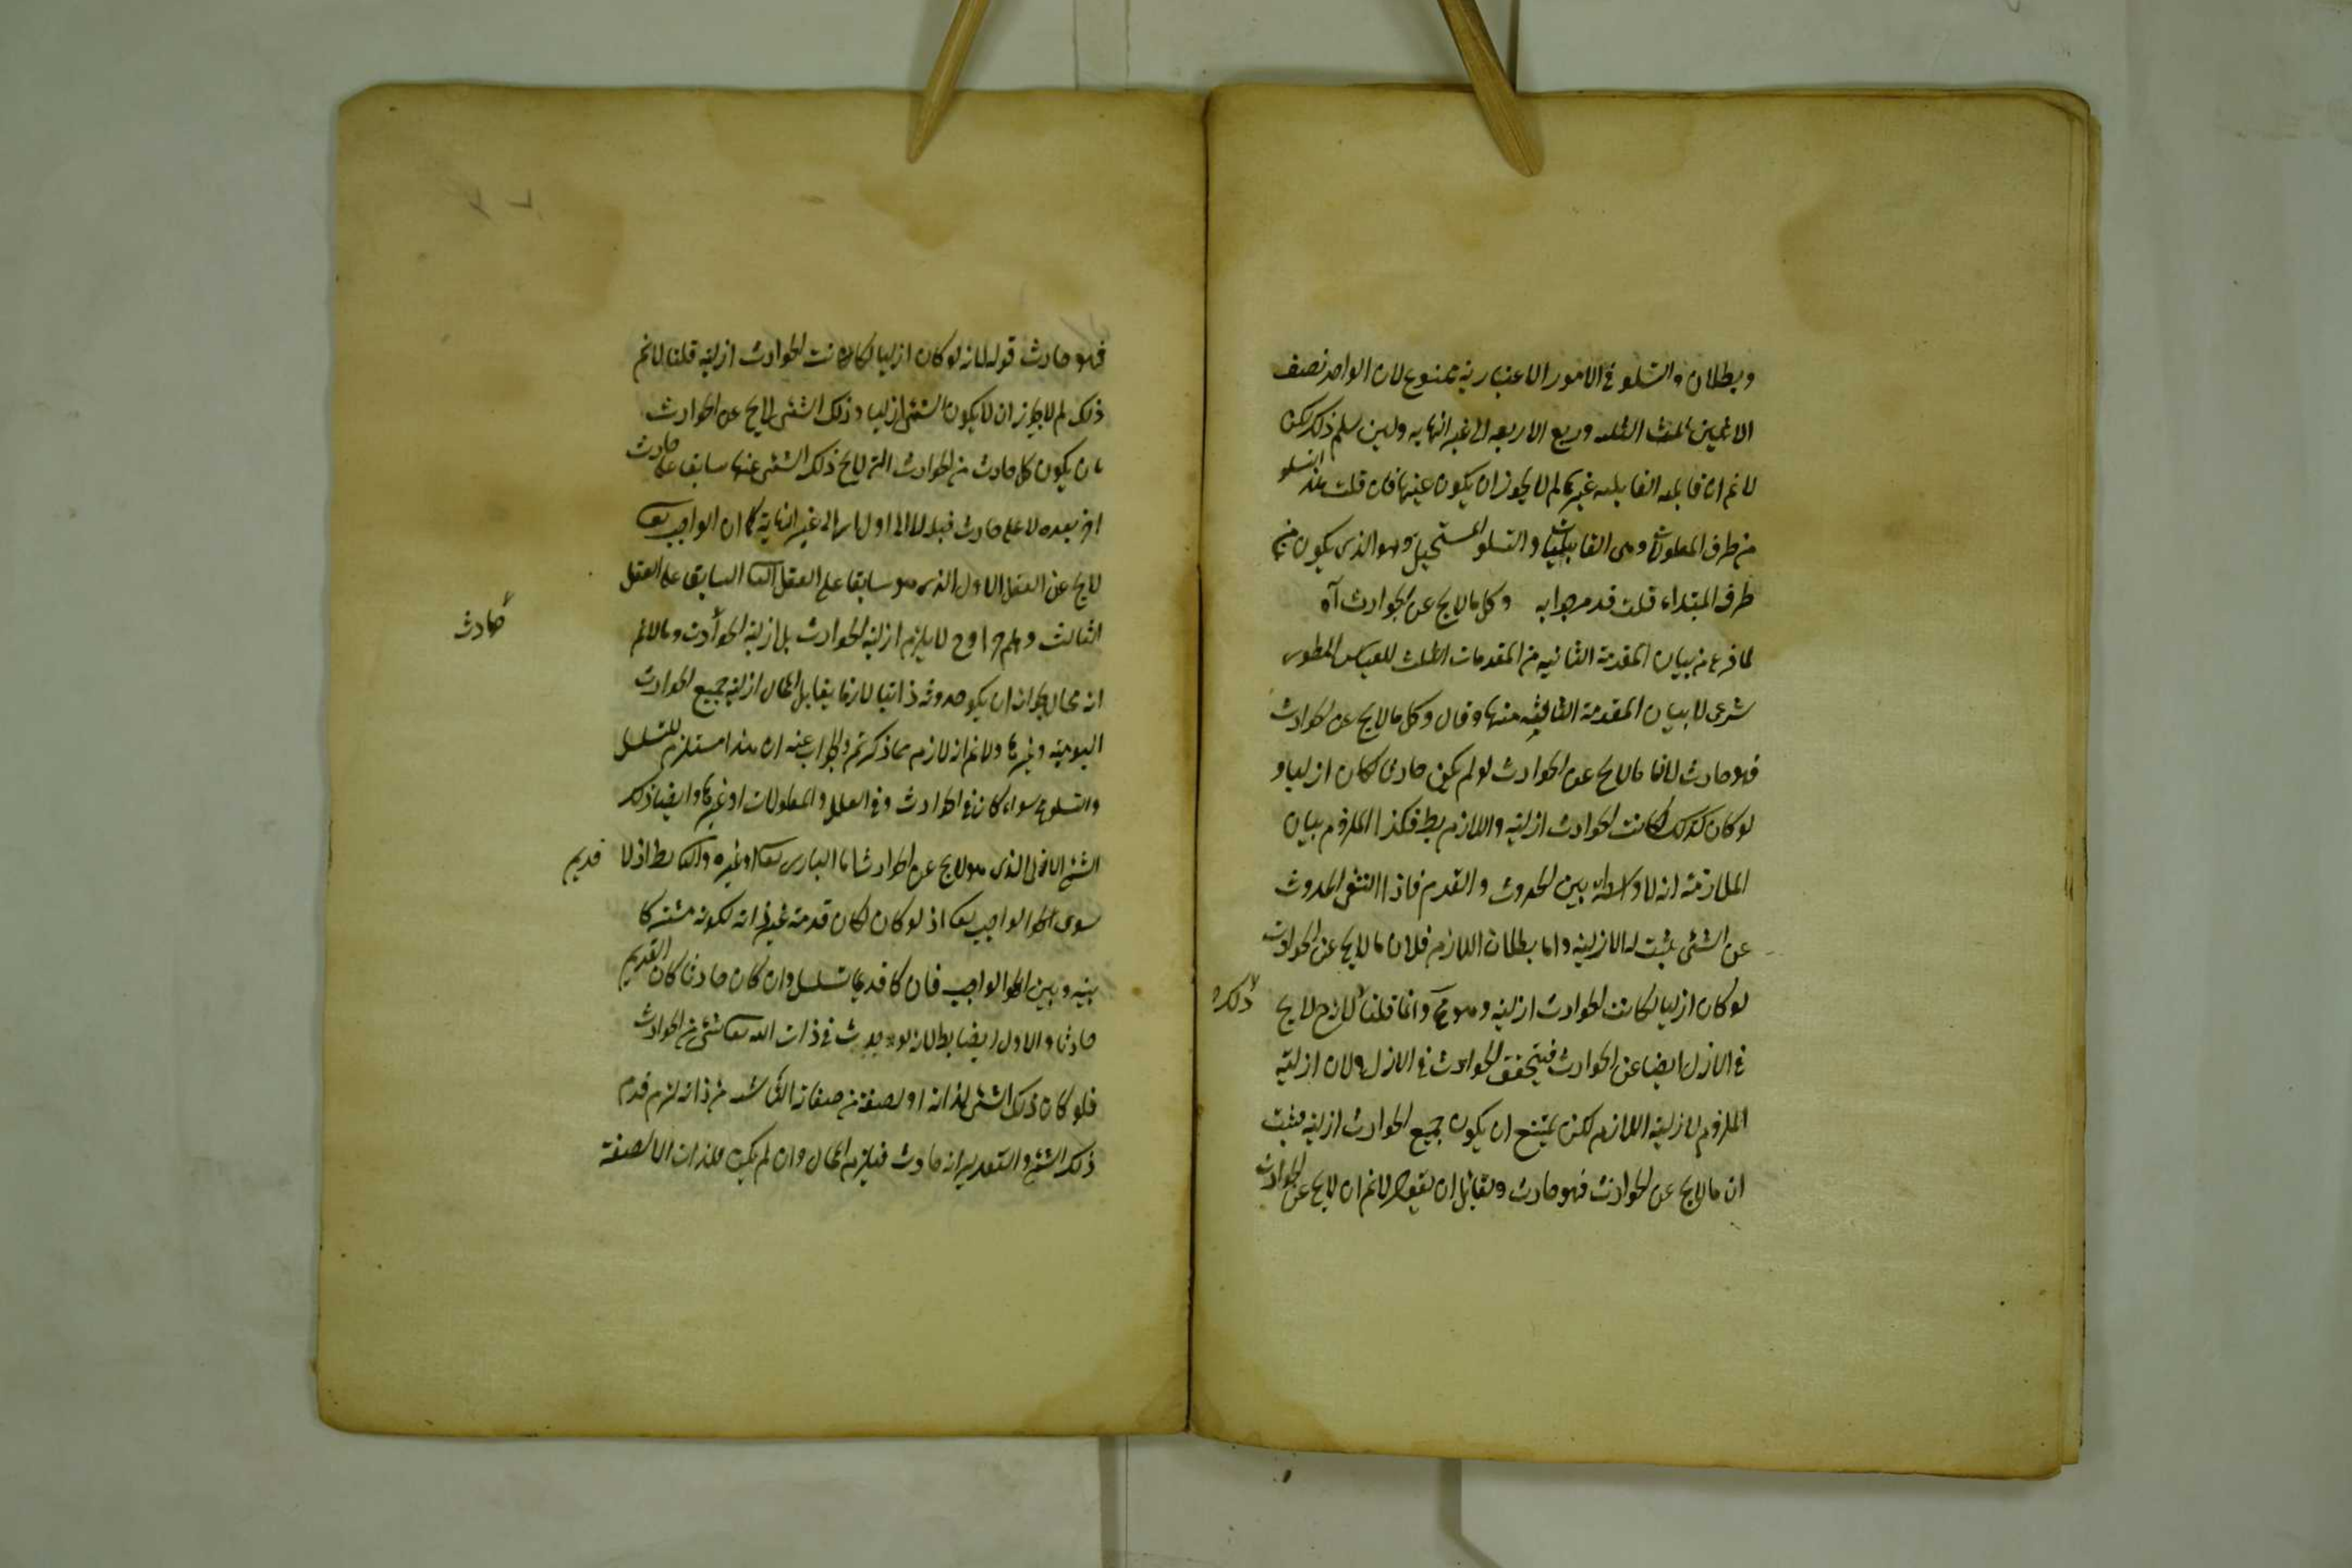 وبطلان والتسلو في الامور الاعتبارية ممنوع لان الواحد نصف
الاثنين ثلث الثلثه وربع الاربعه الى غير النهايه ولين سلم ذلك لكن
لانم ان قابليه القابليه غيرها لم لا يجوز ان يكون عينها فان قلت هذا التسلو
من طرف المعلولات وهى القابليات والتسلو المستحيل وهو الذى يكون من
طرف المبتداء قلت قد مر جوابه وكل ما لايخ عن الحوادث آه
لما فرع من بيان المقدمة الثانيه من المقدمات الثلث للقياس المطوى
شرع لا بيان المقدمة الثالثه منها وقال وكل مالايخ عن الحوادث
فهو حادث لانا مالايخ عن الحوادث لو لم يكن حادثا لكان ازليا و
لو كان كذلك لكانت الحوادث ازلية واللازم بط فكذا الملزوم بيان
الملازمة انه لا واسطه بين الحدوث والقدم فاذا انتفى الحدوث
عن الشئ يثبت له الازلية واما بطلان اللازم فلان مالايخ عن الحوادث
لو كان ازليا لكانت الحوادث ازلية وهو مح وانما قلنا لانه ح لايخ
ذلك
في الازل ايضا عن الحوادث فيتحقق الحوادث في الازل ولان ازلية
الملزوم لازلية اللازم لكن يمتنع ان يكون جميع الحوادث ازلية فثبت
ان مالايخ عن الحوادث فهو حادث ولقائل ان يقول لانم ان لايخ عن الحوادث
فهو حادث قوله لانه لو كان ازليا لكانت الحوادث ازلية قلنا لانم
ذلك لم لايجوز ان لايكون الشئ ازليا وذلك الشئ لايخ عن الحوادث
بان يكون كل حادث من الحوادث التى لايخ ذلك الشئ عنها سابقا على حادث
اخر بعده لا على حادث قبله لا الى اول بل الى غير النهاية كما ان الواجب تعا
لايخ عن العقل الاول الذى هو سابقا على العقل الثا السابق على العقل
الثالث وهلم جرا وح لايلزم ازلية الحوادث بل ازلية الحوادث ومالانم
حادث
انه محال لجواز ان يكو حدوثه ذاتيا لازما يقابل المحال ازلية جميع الحوادث
اليومية وغيرها ولانم انه لازم مما ذكرتم والجواب عنه ان هذا مستلزم للتسلسل
والتسلو مح سواء كان في الحوادث وفي العلل والمعلولات او غيرها وايضا ذلك
الشئ الازلى الذى هو لايخ عن الحوادث اما البارى تعا او غيره والثا بط اذ لا قديم
سوى الحق الواجب تعا اذ لو كان لكان قدمه غير ذاته لكونه مشتركا
بينه وبين الحق الواجب فان كا قديما تسلسل وان كان حادثا كان القديم
حادثا والاول ايضا بط لانه لو يحدث في ذات الله تعا شئ من الحوادث
فلو كان ذلك الشئ لذاته او لصفة من صفاته من ذاته لزم قدم
ذلك الشئ والتقدير انه حادث فيلزم المحال وان لم يكن لذات الا لصفة